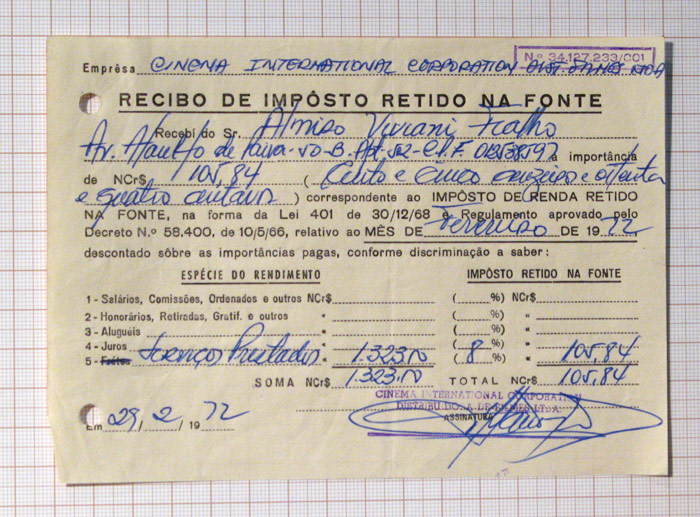 Nº 34.127.233/001
Emprêsa CINEMA INTERNATIONAL CORPORATION DIST. FILMES LTDA
RECIBO DE IMPÔSTO RETIDO NA FONTE
Recebi do Sr. Almiro Viviani Fialho
Av. Ataulfo de Paiva-50-B. Apt-512-C.P.F. à importância
de NCr$ 105,84 ( Cento e cinco cruzeiros e oitenta
e quatro centavos ) correspondente ao IMPÔSTO DE RENDA RETIDO
NA FONTE, na forma da Lei 401 de 30/12/68 e Regulamento aprovado pelo
Decreto N.º 58.400, de 10/5/66, relativo ao MÊS DE Fevereiro DE 1972
descontado sôbre as importâncias pagas, conforme discriminação a saber:
ESPÉCIE DO RENDIMENTO IMPÔSTO RETIDO NA FONTE
1 - Salários, Comissões, Ordenados e outros NCr$ ( %) NCr$
2 - Honorários, Retiradas, Gratif. e outros " ( %) "
3 - Aluguéis " ( %) "
4 - Juros " ( %) "
5 - Fretes Serviços Prestados 1.323,00 ( 8 %) 105,84
SOMA NCr$ 1.323,00 TOTAL NCr$ 105,84
CINEMA INTERNATIONAL CORPORATION
DISTRIBUIDORA DE FILMES LTDA.
ASSINATURA
Em 29/2/1972